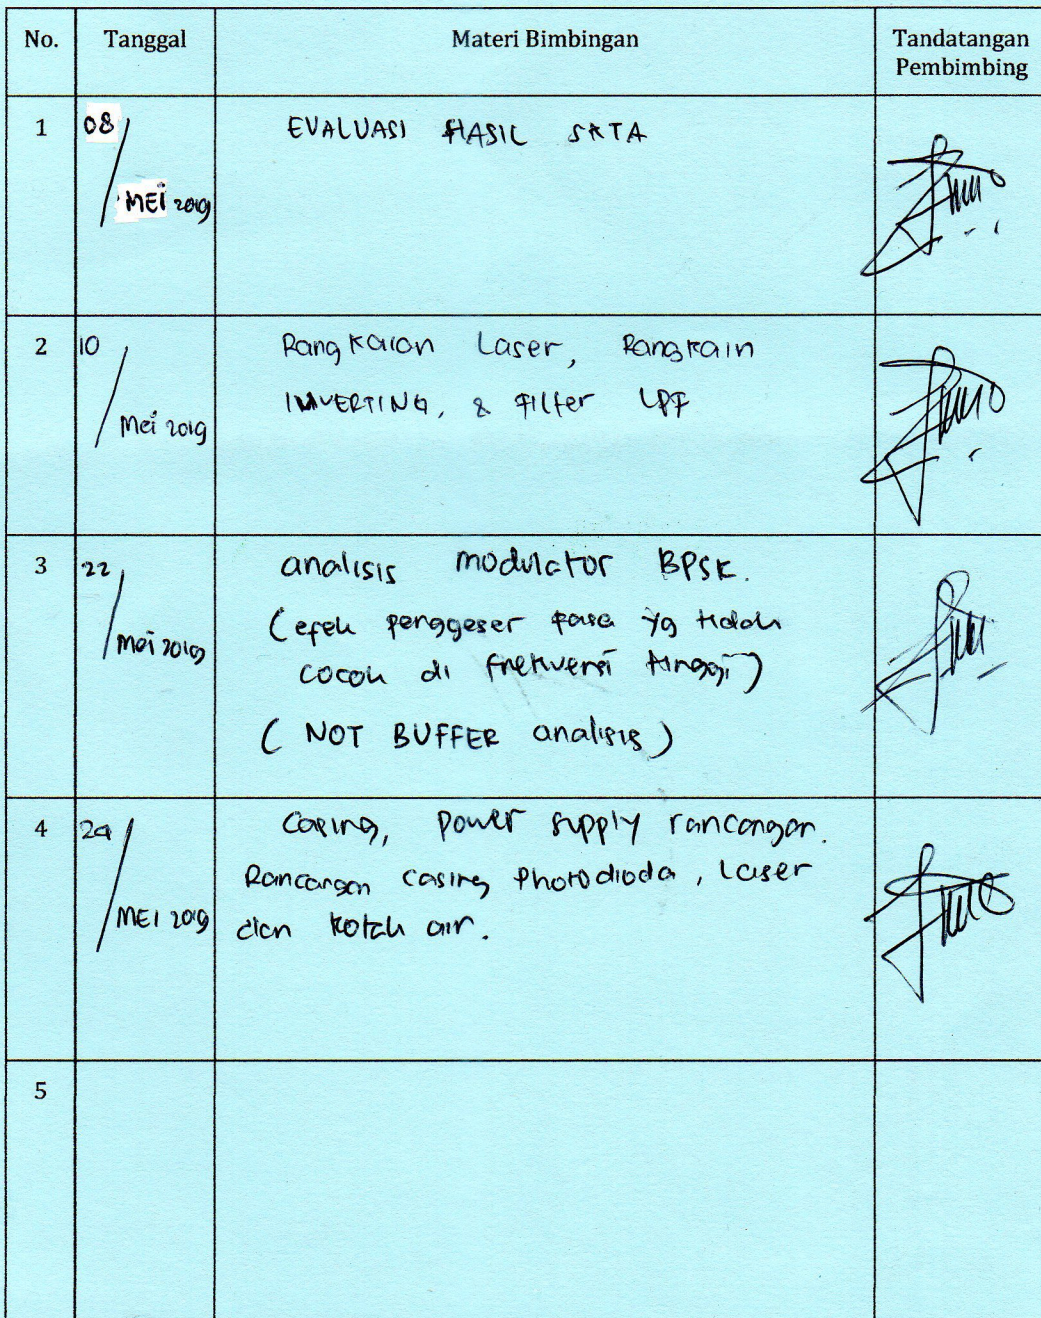 No. Tanggal Materi Bimbingan Tandatangan
Pembimbing
1 08 / EVALUASI HASIL SKTA
MEI 2019
2 10 / Rangkaian Laser, Rangkain
INVERTING, & Filter LPF
Mei 2019
3 22 / analisis modulator BPSK.
(efek penggeser fasa yg tidak
Mei 2019 cocok di frekuensi tinggi)
(NOT BUFFER analisis)
4 / Casing, power supply rancangan.
Rancangan casing Photodioda, Laser
MEI 2019 dan kotak air.
5